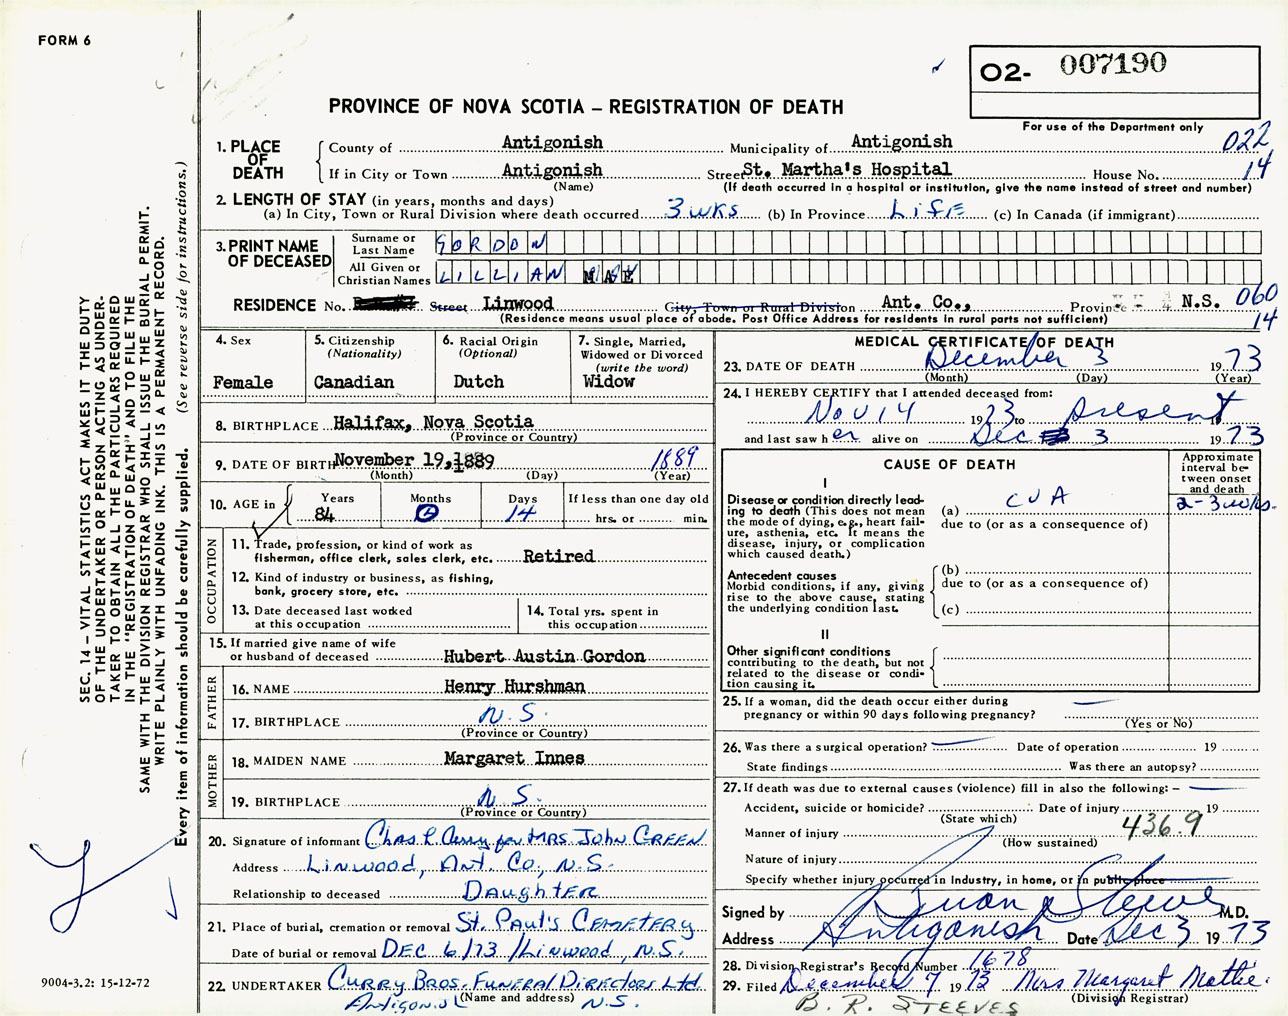 FORM 6
O2- 007190
PROVINCE OF NOVA SCOTIA – REGISTRATION OF DEATH
For use of the Department only
022
14
1. PLACE OF DEATH
County of Antigonish Municipality of Antigonish
If in City or Town Antigonish Street St. Martha's Hospital House No.
(Name) (If death occurred in a hospital or institution, give the name instead of street and number)
2. LENGTH OF STAY (in years, months and days)
(a) In City, Town or Rural Division where death occurred 3 wks (b) In Province LIFE (c) In Canada (if immigrant)
3. PRINT NAME OF DECEASED
Surname or Last Name GORDON
All Given or Christian Names LILLIAN MAE
RESIDENCE No. Street Linwood City, Town or Rural Division Ant. Co., Province N.S. 060
14
(Residence means usual place of abode. Post Office Address for residents in rural parts not sufficient)
4. Sex
Female
5. Citizenship
(Nationality)
Canadian
6. Racial Origin
(Optional)
Dutch
7. Single, Married,
Widowed or Divorced
(write the word)
Widow
8. BIRTHPLACE Halifax, Nova Scotia
(Province or Country)
9. DATE OF BIRTH November 19, 1889 1889
(Month) (Day) (Year)
10. AGE in
Years Months Days If less than one day old
84 0 14 hrs. or min.
OCCUPATION
11. Trade, profession, or kind of work as
fisherman, office clerk, sales clerk, etc. Retired
12. Kind of industry or business, as fishing,
bank, grocery store, etc.
13. Date deceased last worked
at this occupation
14. Total yrs. spent in
this occupation
15. If married give name of wife
or husband of deceased Hubert Austin Gordon
FATHER
16. NAME Henry Hurshman
17. BIRTHPLACE N.S.
(Province or Country)
MOTHER
18. MAIDEN NAME Margaret Innes
19. BIRTHPLACE N.S.
(Province or Country)
20. Signature of informant Chas L Curry for MRS JOHN GREEN
Address LINWOOD, ANT. CO., N.S.
Relationship to deceased DAUGHTER
21. Place of burial, cremation or removal ST. PAUL'S CEMETERY
Date of burial or removal DEC 6/73 /LINWOOD, N.S.
22. UNDERTAKER CURRY BROS. FUNERAL DIRECTORS Ltd
(Name and address) N.S.
MEDICAL CERTIFICATE OF DEATH
23. DATE OF DEATH December 3 1973
(Month) (Day) (Year)
24. I HEREBY CERTIFY that I attended deceased from:
Nov 14 1973 to present 19
and last saw her alive on Dec 3 1973
CAUSE OF DEATH
Approximate
interval be-
tween onset
and death
I
Disease or condition directly lead-
ing to death (This does not mean
the mode of dying, e.g., heart fail-
ure, asthenia, etc. It means the
disease, injury, or complication
which caused death.)
(a) CVA 2-3 wks.
due to (or as a consequence of)
Antecedent causes
Morbid conditions, if any, giving
rise to the above cause, stating
the underlying condition last.
(b)
due to (or as a consequence of)
(c)
II
Other significant conditions
contributing to the death, but not
related to the disease or condi-
tion causing it.
25. If a woman, did the death occur either during
pregnancy or within 90 days following pregnancy?
(Yes or No)
26. Was there a surgical operation? Date of operation 19
State findings Was there an autopsy?
27. If death was due to external causes (violence) fill in also the following: –
Accident, suicide or homicide? Date of injury 19
(State which)
436.9
Manner of injury
(How sustained)
Nature of injury
Specify whether injury occurred in Industry, in home, or in public place
Signed by Brian Steeves M.D.
Address Antigonish Date Dec 3 1973
28. Division Registrar's Record Number 1678
29. Filed December 7 1973 Mrs Margaret Mattie.
(Division Registrar)
B. R. STEEVES
SEC. 14 – VITAL STATISTICS ACT MAKES IT THE DUTY
OF THE UNDERTAKER OR PERSON ACTING AS UNDER-
TAKER TO OBTAIN ALL THE PARTICULARS REQUIRED
IN THE "REGISTRATION OF DEATH" AND TO FILE THE
SAME WITH THE DIVISION REGISTRAR WHO SHALL ISSUE THE BURIAL PERMIT.
WRITE PLAINLY WITH UNFADING INK. THIS IS A PERMANENT RECORD.
Every item of information should be carefully supplied. (See reverse side for instructions.)
9004-3.2: 15-12-72